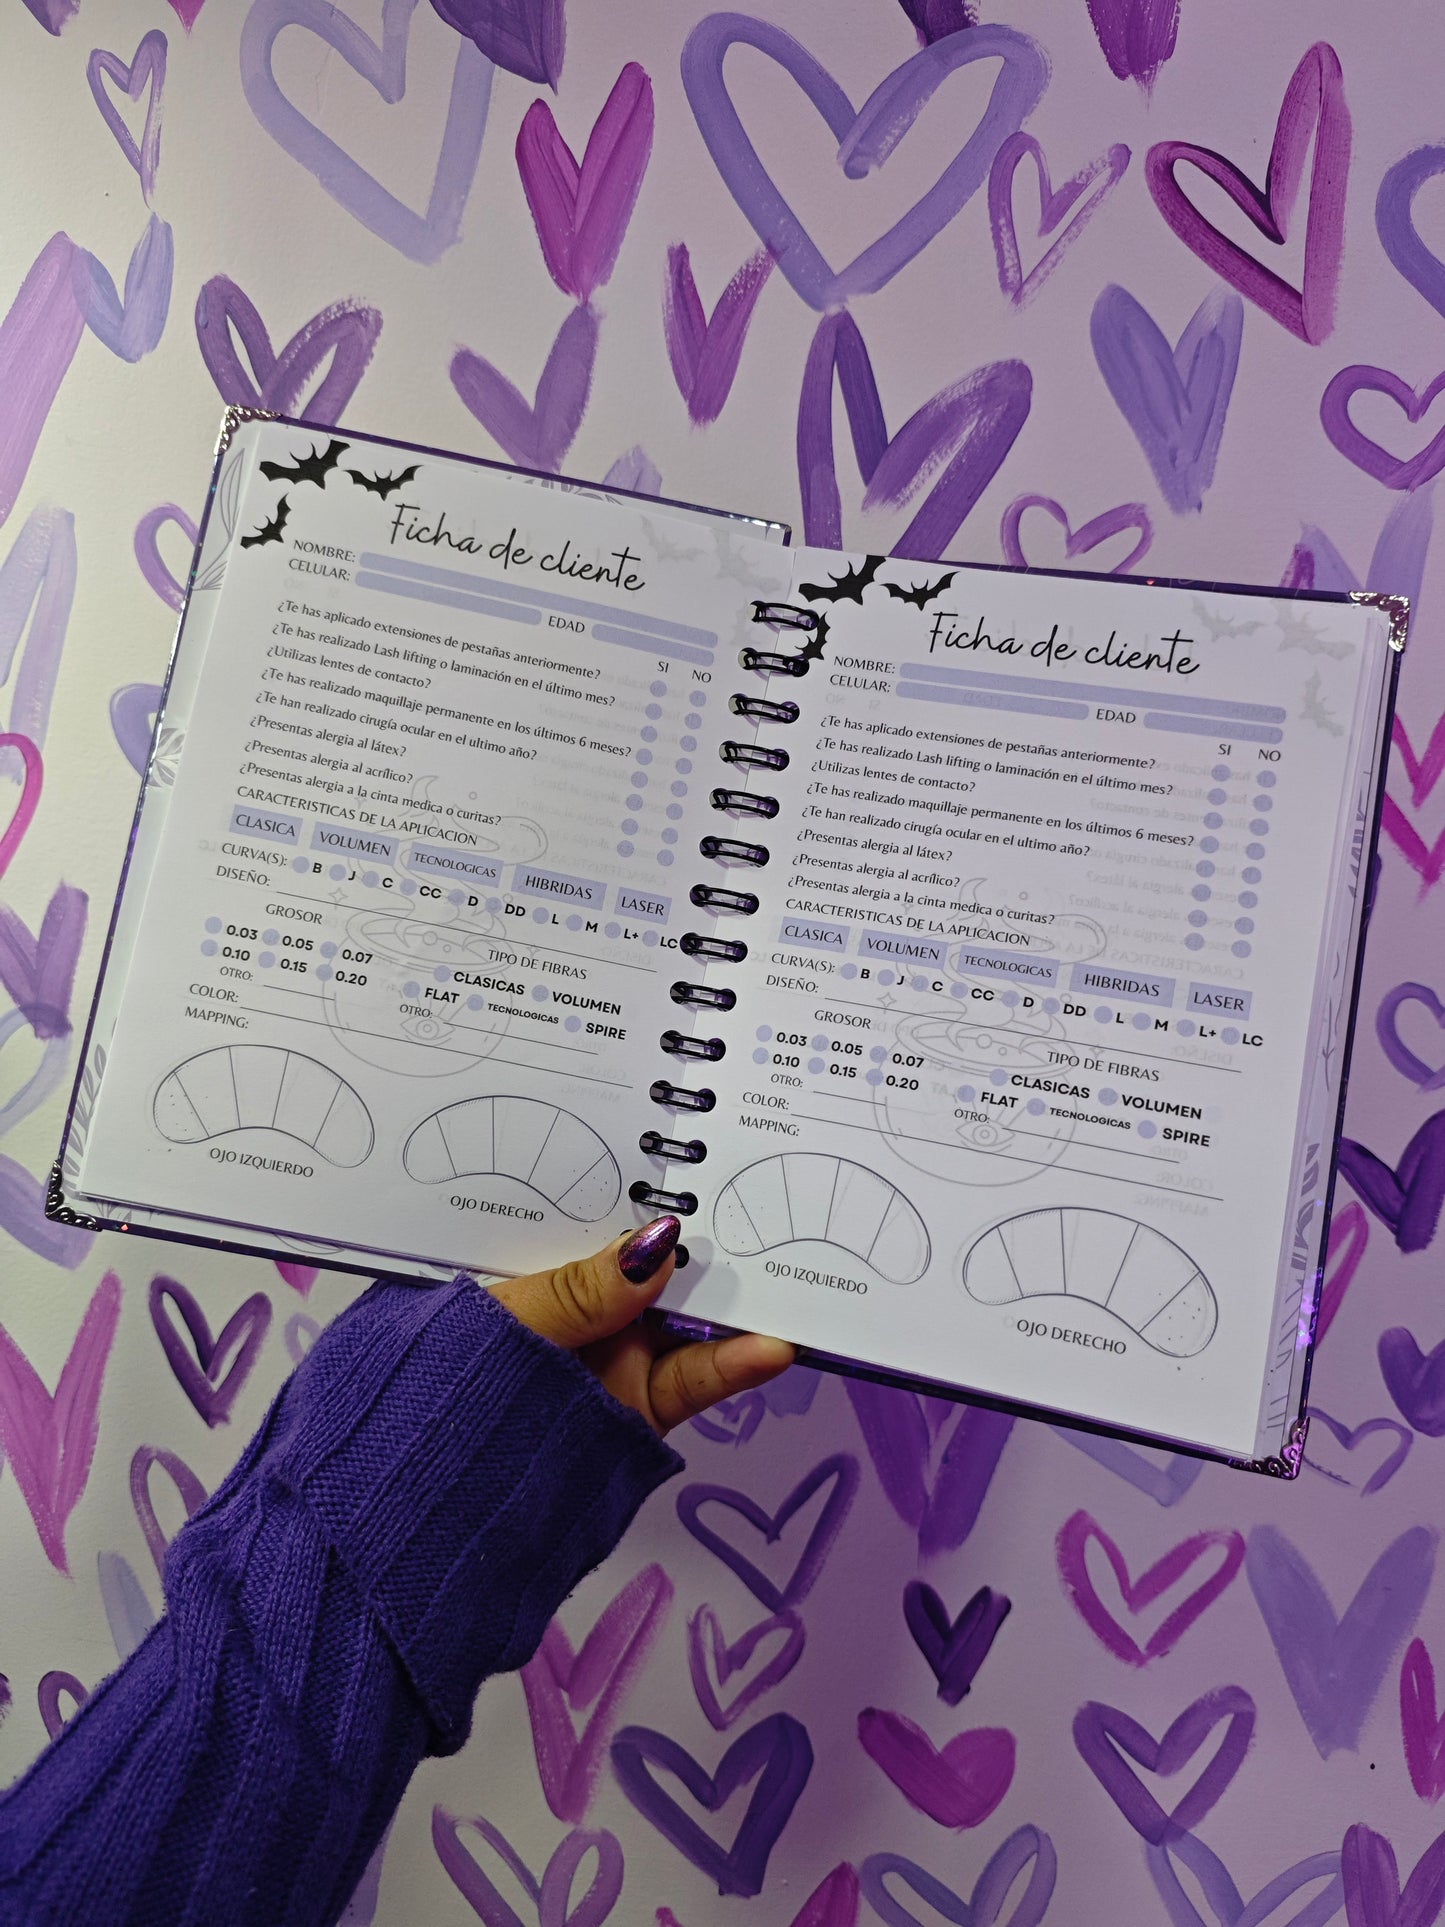 Ficha de cliente
NOMBRE:
CELULAR:
EDAD
SI NO
¿Te has aplicado extensiones de pestañas anteriormente?
¿Te has realizado Lash lifting o laminación en el último mes?
¿Utilizas lentes de contacto?
¿Te has realizado maquillaje permanente en los últimos 6 meses?
¿Te han realizado cirugía ocular en el ultimo año?
¿Presentas alergia al látex?
¿Presentas alergia al acrílico?
¿Presentas alergia a la cinta medica o curitas?
CARACTERISTICAS DE LA APLICACION
CLASICA VOLUMEN TECNOLOGICAS HIBRIDAS LASER
CURVA(S): B J C CC D DD L M L+ LC
DISEÑO:
GROSOR
TIPO DE FIBRAS
0.03 0.05 0.07
CLASICAS VOLUMEN
0.10 0.15 0.20
FLAT TECNOLOGICAS SPIRE
OTRO:
OTRO:
COLOR:
MAPPING:
OJO IZQUIERDO
OJO DERECHO
Ficha de cliente
NOMBRE:
CELULAR:
EDAD
SI NO
¿Te has aplicado extensiones de pestañas anteriormente?
¿Te has realizado Lash lifting o laminación en el último mes?
¿Utilizas lentes de contacto?
¿Te has realizado maquillaje permanente en los últimos 6 meses?
¿Te han realizado cirugía ocular en el ultimo año?
¿Presentas alergia al látex?
¿Presentas alergia al acrílico?
¿Presentas alergia a la cinta medica o curitas?
CARACTERISTICAS DE LA APLICACION
CLASICA VOLUMEN TECNOLOGICAS HIBRIDAS LASER
CURVA(S): B J C CC D DD L M L+ LC
DISEÑO:
GROSOR
TIPO DE FIBRAS
0.03 0.05 0.07
CLASICAS VOLUMEN
0.10 0.15 0.20
FLAT TECNOLOGICAS SPIRE
OTRO:
OTRO:
COLOR:
MAPPING:
OJO IZQUIERDO
OJO DERECHO